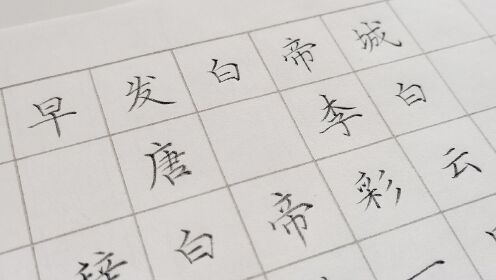 早发白帝城
唐 李白
白帝彩云
一